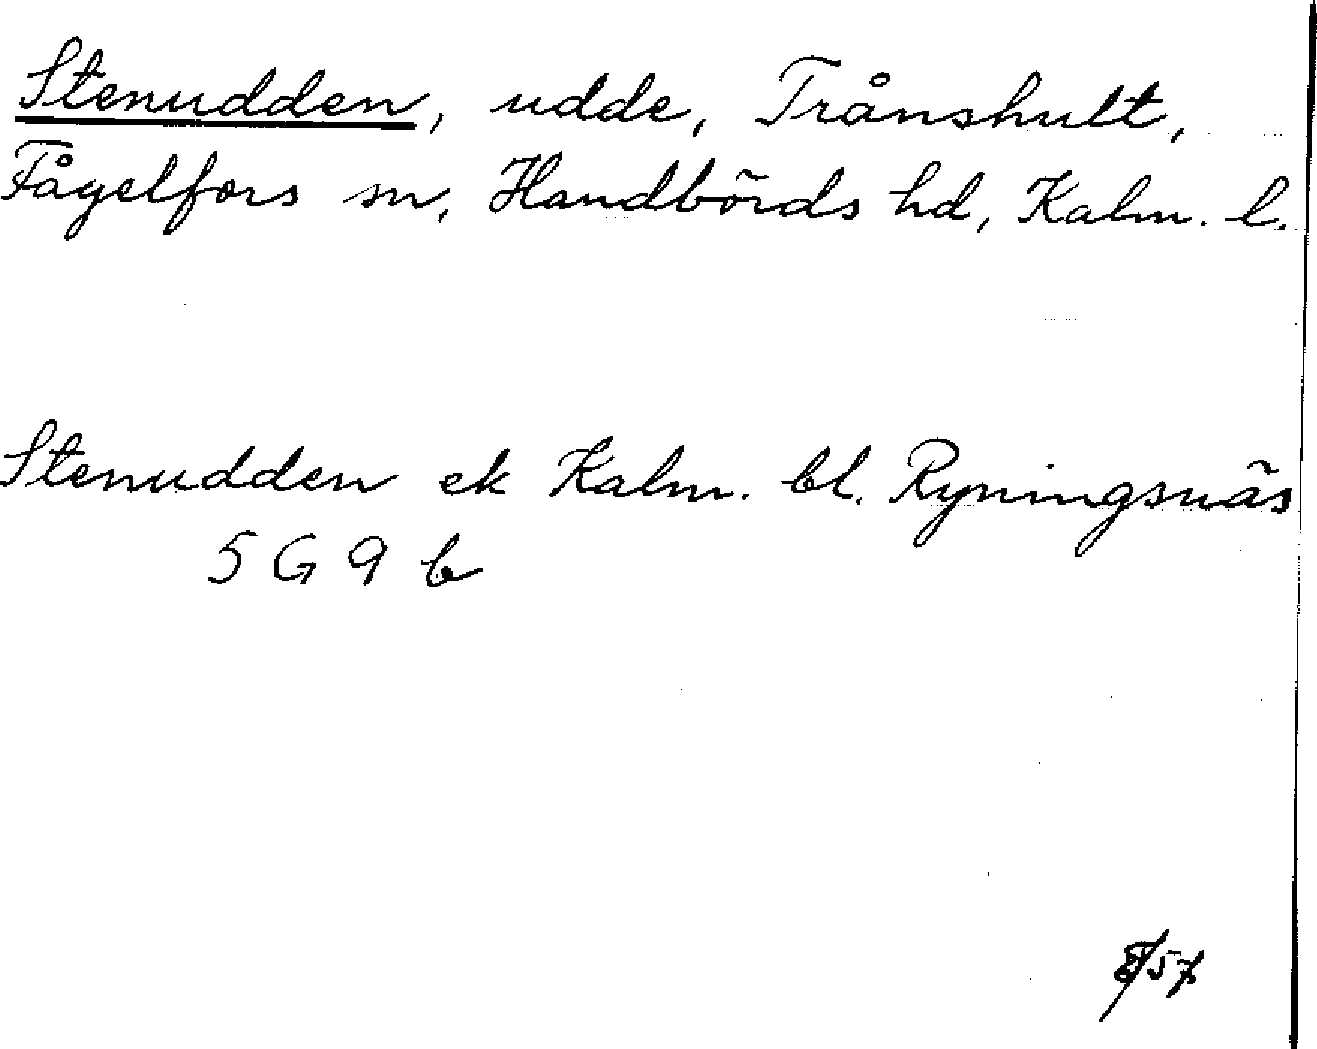 Stenudden, udde, Trånshult,
Fågelfors sn, Handbörds hd, Kalm. l.
Stenudden ek Kalm. bl. Ryningsnäs
5 G 9 b
57